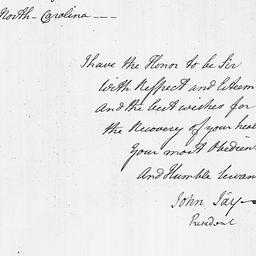 North-Carolina ---
I have the Honor to be Sir
with Respect and Esteem
and the best wishes for
the Recovery of your heal
Your most Obedien
And Humble Servan
John Jay
President